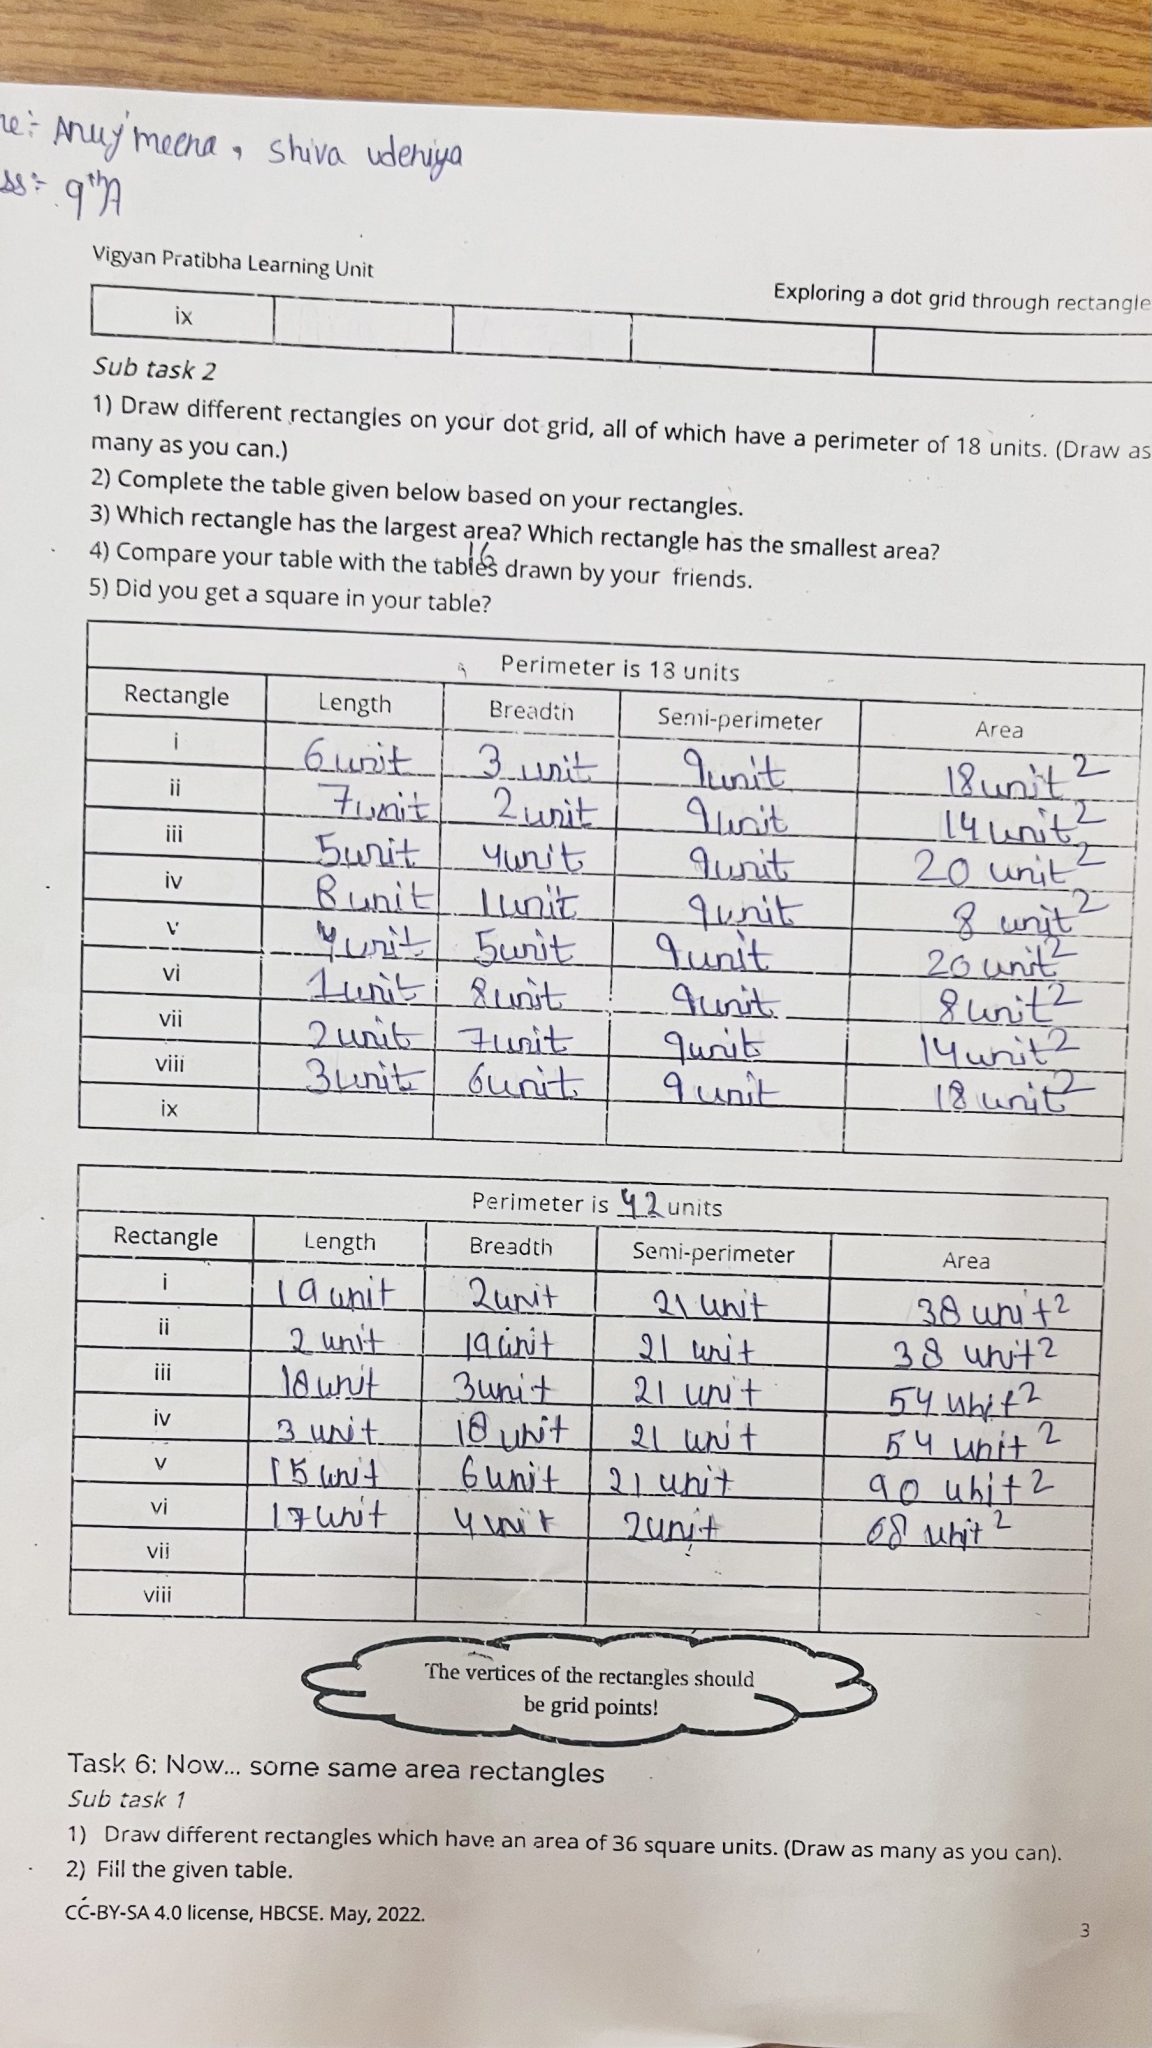 re:- Anuj meena, Shiva udeniya
ss:- 9thA
Vigyan Pratibha Learning Unit
Exploring a dot grid through rectangle
ix
Sub task 2
1) Draw different rectangles on your dot grid, all of which have a perimeter of 18 units. (Draw as
many as you can.)
2) Complete the table given below based on your rectangles.
3) Which rectangle has the largest area? Which rectangle has the smallest area?
16
4) Compare your table with the tables drawn by your friends.
5) Did you get a square in your table?
Perimeter is 18 units
Rectangle Length Breadth Semi-perimeter Area
i 6 unit 3 unit 9 unit 18 unit²
ii 7 unit 2 unit 9 unit 14 unit²
iii 5 unit 4 unit 9 unit 20 unit²
iv 8 unit 1 unit 9 unit 8 unit²
v 4 unit 5 unit 9 unit 20 unit²
vi 1 unit 8 unit 9 unit 8 unit²
vii 2 unit 7 unit 9 unit 14 unit²
viii 3 unit 6 unit 9 unit 18 unit²
ix
Perimeter is 42 units
Rectangle Length Breadth Semi-perimeter Area
i 19 unit 2 unit 21 unit 38 unit²
ii 2 unit 19 unit 21 unit 38 unit²
iii 18 unit 3 unit 21 unit 54 unit²
iv 3 unit 18 unit 21 unit 54 unit²
v 15 unit 6 unit 21 unit 90 unit²
vi 17 unit 4 unit 2 unit 68 unit²
vii
viii
The vertices of the rectangles should
be grid points!
Task 6: Now... some same area rectangles
Sub task 1
1) Draw different rectangles which have an area of 36 square units. (Draw as many as you can).
2) Fill the given table.
CC-BY-SA 4.0 license, HBCSE. May, 2022.
3